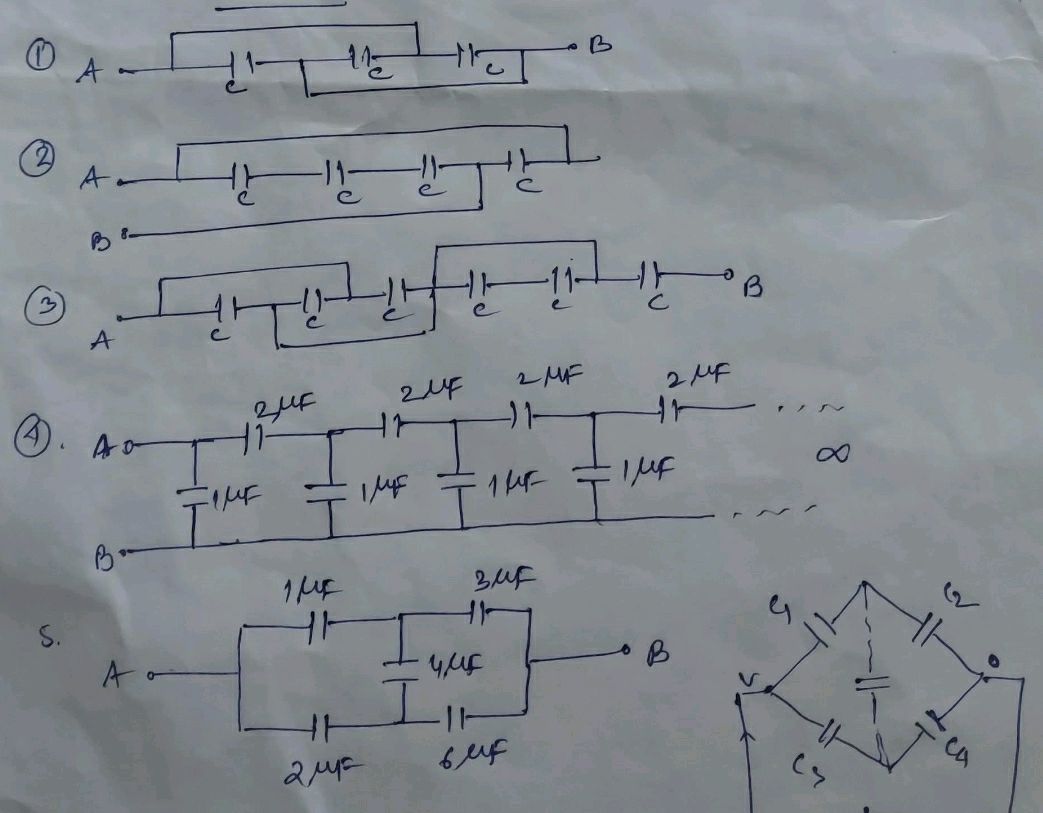 ① A B
C C C
② A
C C C C
B
③ A B
C C C C C C
④. A 2μF 2μF 2μF 2μF ....
1μF 1μF 1μF 1μF ∞
B ....
1μF 3μF
5. A 4μF B
2μF 6μF
C1 C2
V 0
C3 C4